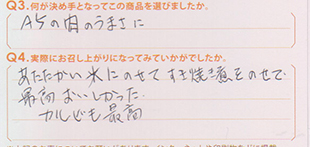 Q3.何が決め手となってこの商品を選びましたか。
A5の肉のうまさに
Q4.実際にお召し上がりになってみていかがでしたか。
あたたかい 米にのせて すき焼き煮をのせて
最高においしかった.
カルビも 最高